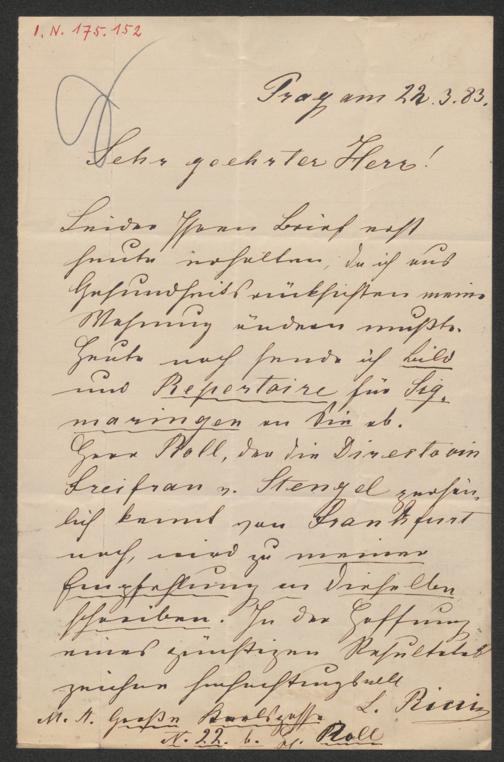 I. N. 175.152
Prag am 22.3.83.
Sehr geehrter Herr!
Leider Ihren Brief erst
heute erhalten, da ich aus
Gesundheitsrücksichten meine
Wohnung ändern mußte.
Heute noch sende ich Bild
und Repertoire für Sig-
maringen an Sie ab.
Herr Roll, der die Directorin
Freifrau v. Stengel persön-
lich kennt von Frankfurt
noch, wird zu meiner
Empfehlung an dieselbe
schreiben. In der Hoffnung
eines günstigen Resultates
zeichne hochachtungsvoll
L. Ricci
M. A. Große Karlsgasse
N. 22. b. H. Roll